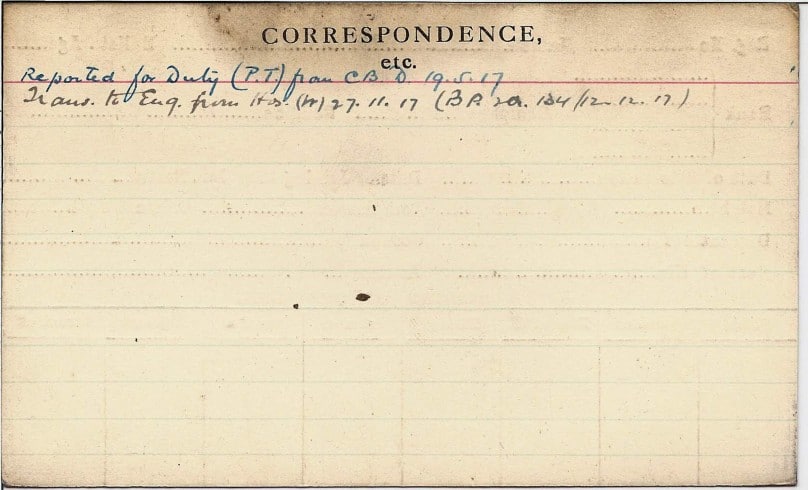 CORRESPONDENCE,
etc.
Reported for Duty (P.T) from C.B.D. 19.5.17
Trans. to Eng. from Hos. (W) 27.11.17 (BR 20. 134/12.12.17.)